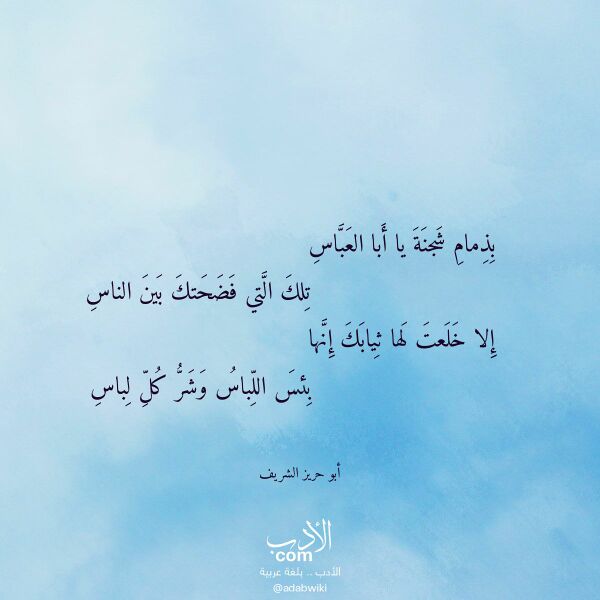 بِذِمامِ شَجنَةَ يا أَبا العَبَّاسِ
تِلكَ الَّتي فَضَحَتكَ بَينَ الناسِ
إِلا خَلَعتَ لَها ثِيابَكَ إِنَّها
بِئسَ اللِّباسُ وَشَرُّ كُلِّ لِباسِ
أبو حريز الشريف
الأدب
com
الأدب .. بلغة عربية
@adabwiki